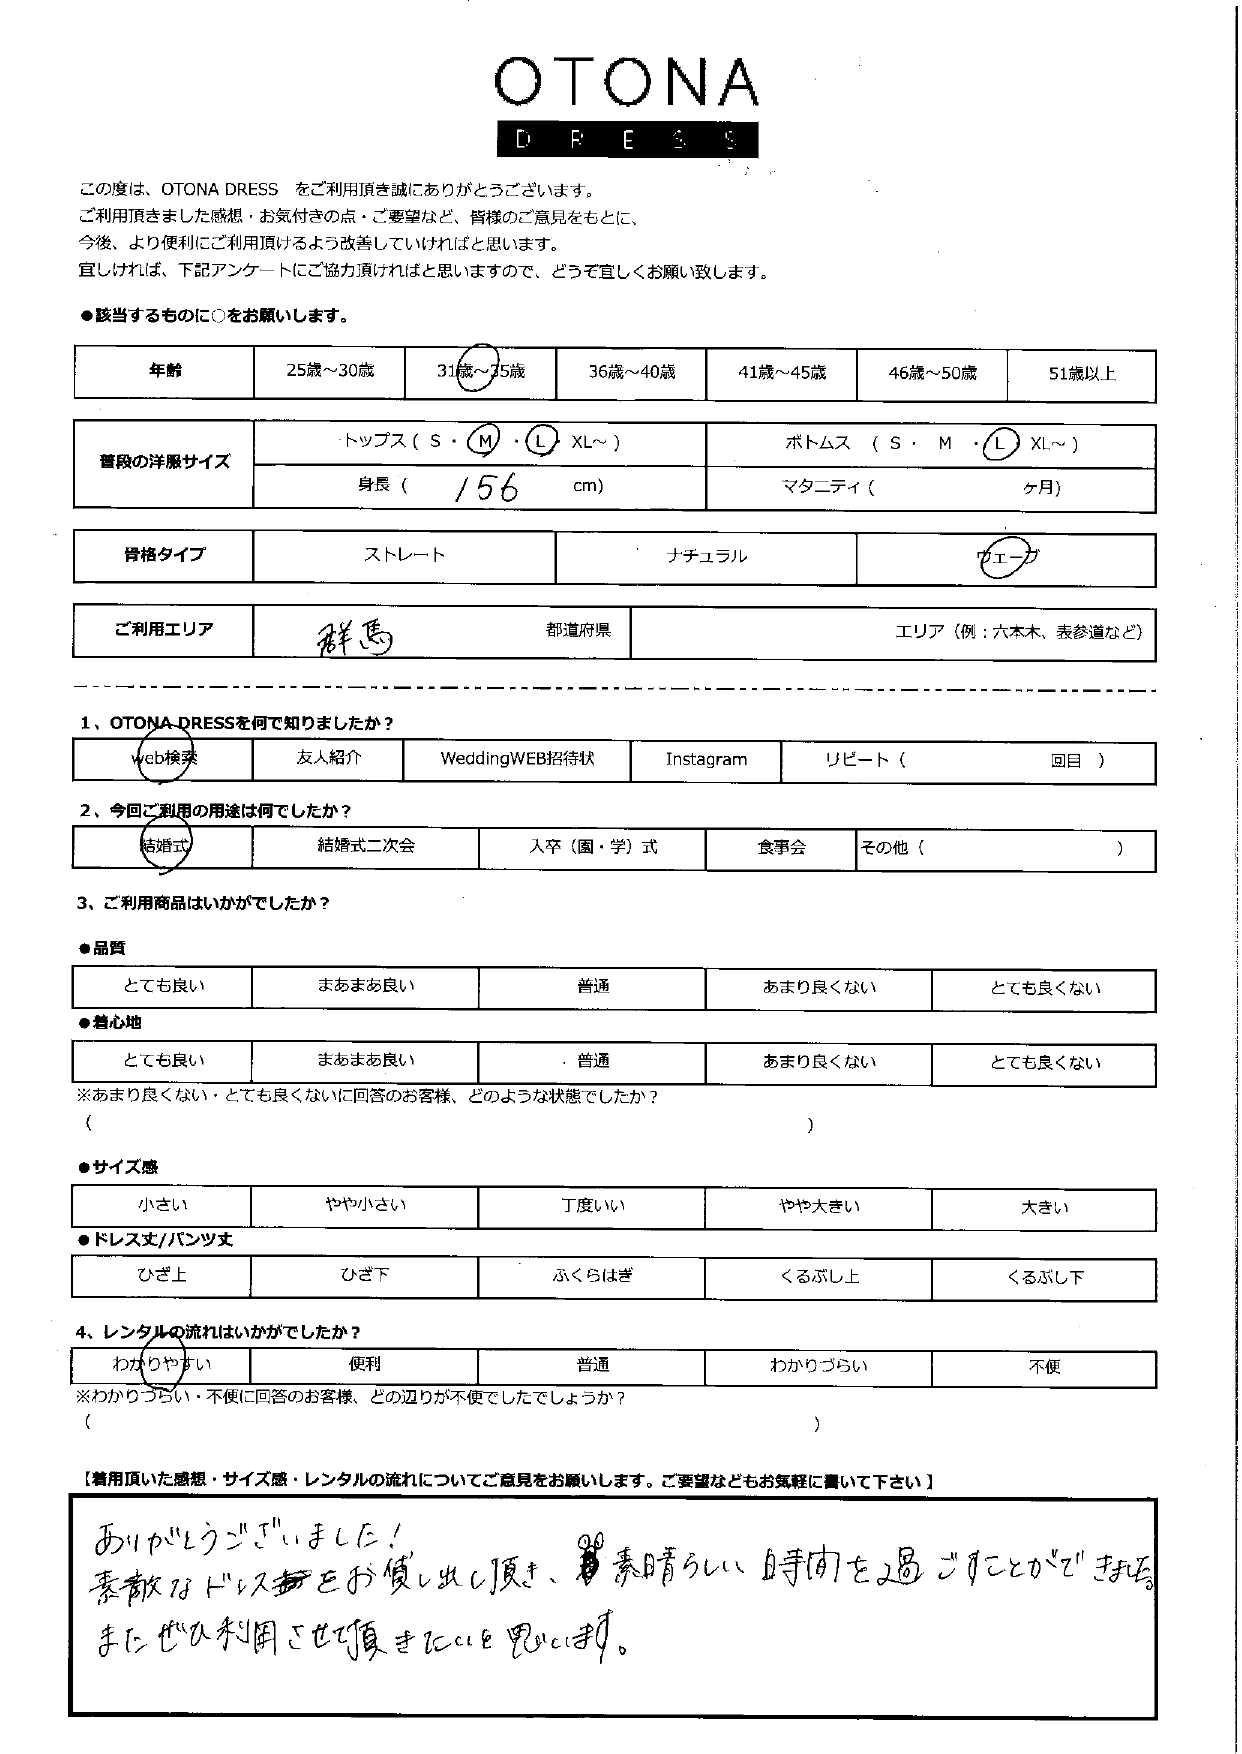 OTONA
DRESS
この度は、OTONA DRESS　をご利用頂き誠にありがとうございます。
ご利用頂きました感想・お気付きの点・ご要望など、皆様のご意見をもとに、
今後、より便利にご利用頂けるよう改善していければと思います。
宜しければ、下記アンケートにご協力頂ければと思いますので、どうぞ宜しくお願い致します。
●該当するものに○をお願いします。
年齢 25歳～30歳 31歳～35歳 36歳～40歳 41歳～45歳 46歳～50歳 51歳以上
普段の洋服サイズ トップス ( S ・ M ・ L ・ XL～ ) ボトムス ( S ・ M ・ L XL～ )
身長 ( 156 cm) マタニティ ( ヶ月)
骨格タイプ ストレート ナチュラル ウェーブ
ご利用エリア 群馬 都道府県 エリア（例：六本木、表参道など）
1、OTONA DRESSを何で知りましたか？
web検索 友人紹介 WeddingWEB招待状 Instagram リピート ( 回目 )
2、今回ご利用の用途は何でしたか？
結婚式 結婚式二次会 入卒（園・学）式 食事会 その他 ( )
3、ご利用商品はいかがでしたか？
●品質
とても良い まあまあ良い 普通 あまり良くない とても良くない
●着心地
とても良い まあまあ良い 普通 あまり良くない とても良くない
※あまり良くない・とても良くないに回答のお客様、どのような状態でしたか？
( )
●サイズ感
小さい やや小さい 丁度いい やや大きい 大きい
●ドレス丈/パンツ丈
ひざ上 ひざ下 ふくらはぎ くるぶし上 くるぶし下
4、レンタルの流れはいかがでしたか？
わかりやすい 便利 普通 わかりづらい 不便
※わかりづらい・不便に回答のお客様、どの辺りが不便でしたでしょうか？
( )
【着用頂いた感想・サイズ感・レンタルの流れについてご意見をお願いします。ご要望などもお気軽に書いて下さい 】
ありがとうございました！
素敵なドレスをお貸し出し頂き、素晴らしい時間を過ごすことができました。
またぜひ利用させて頂きたいと思います。